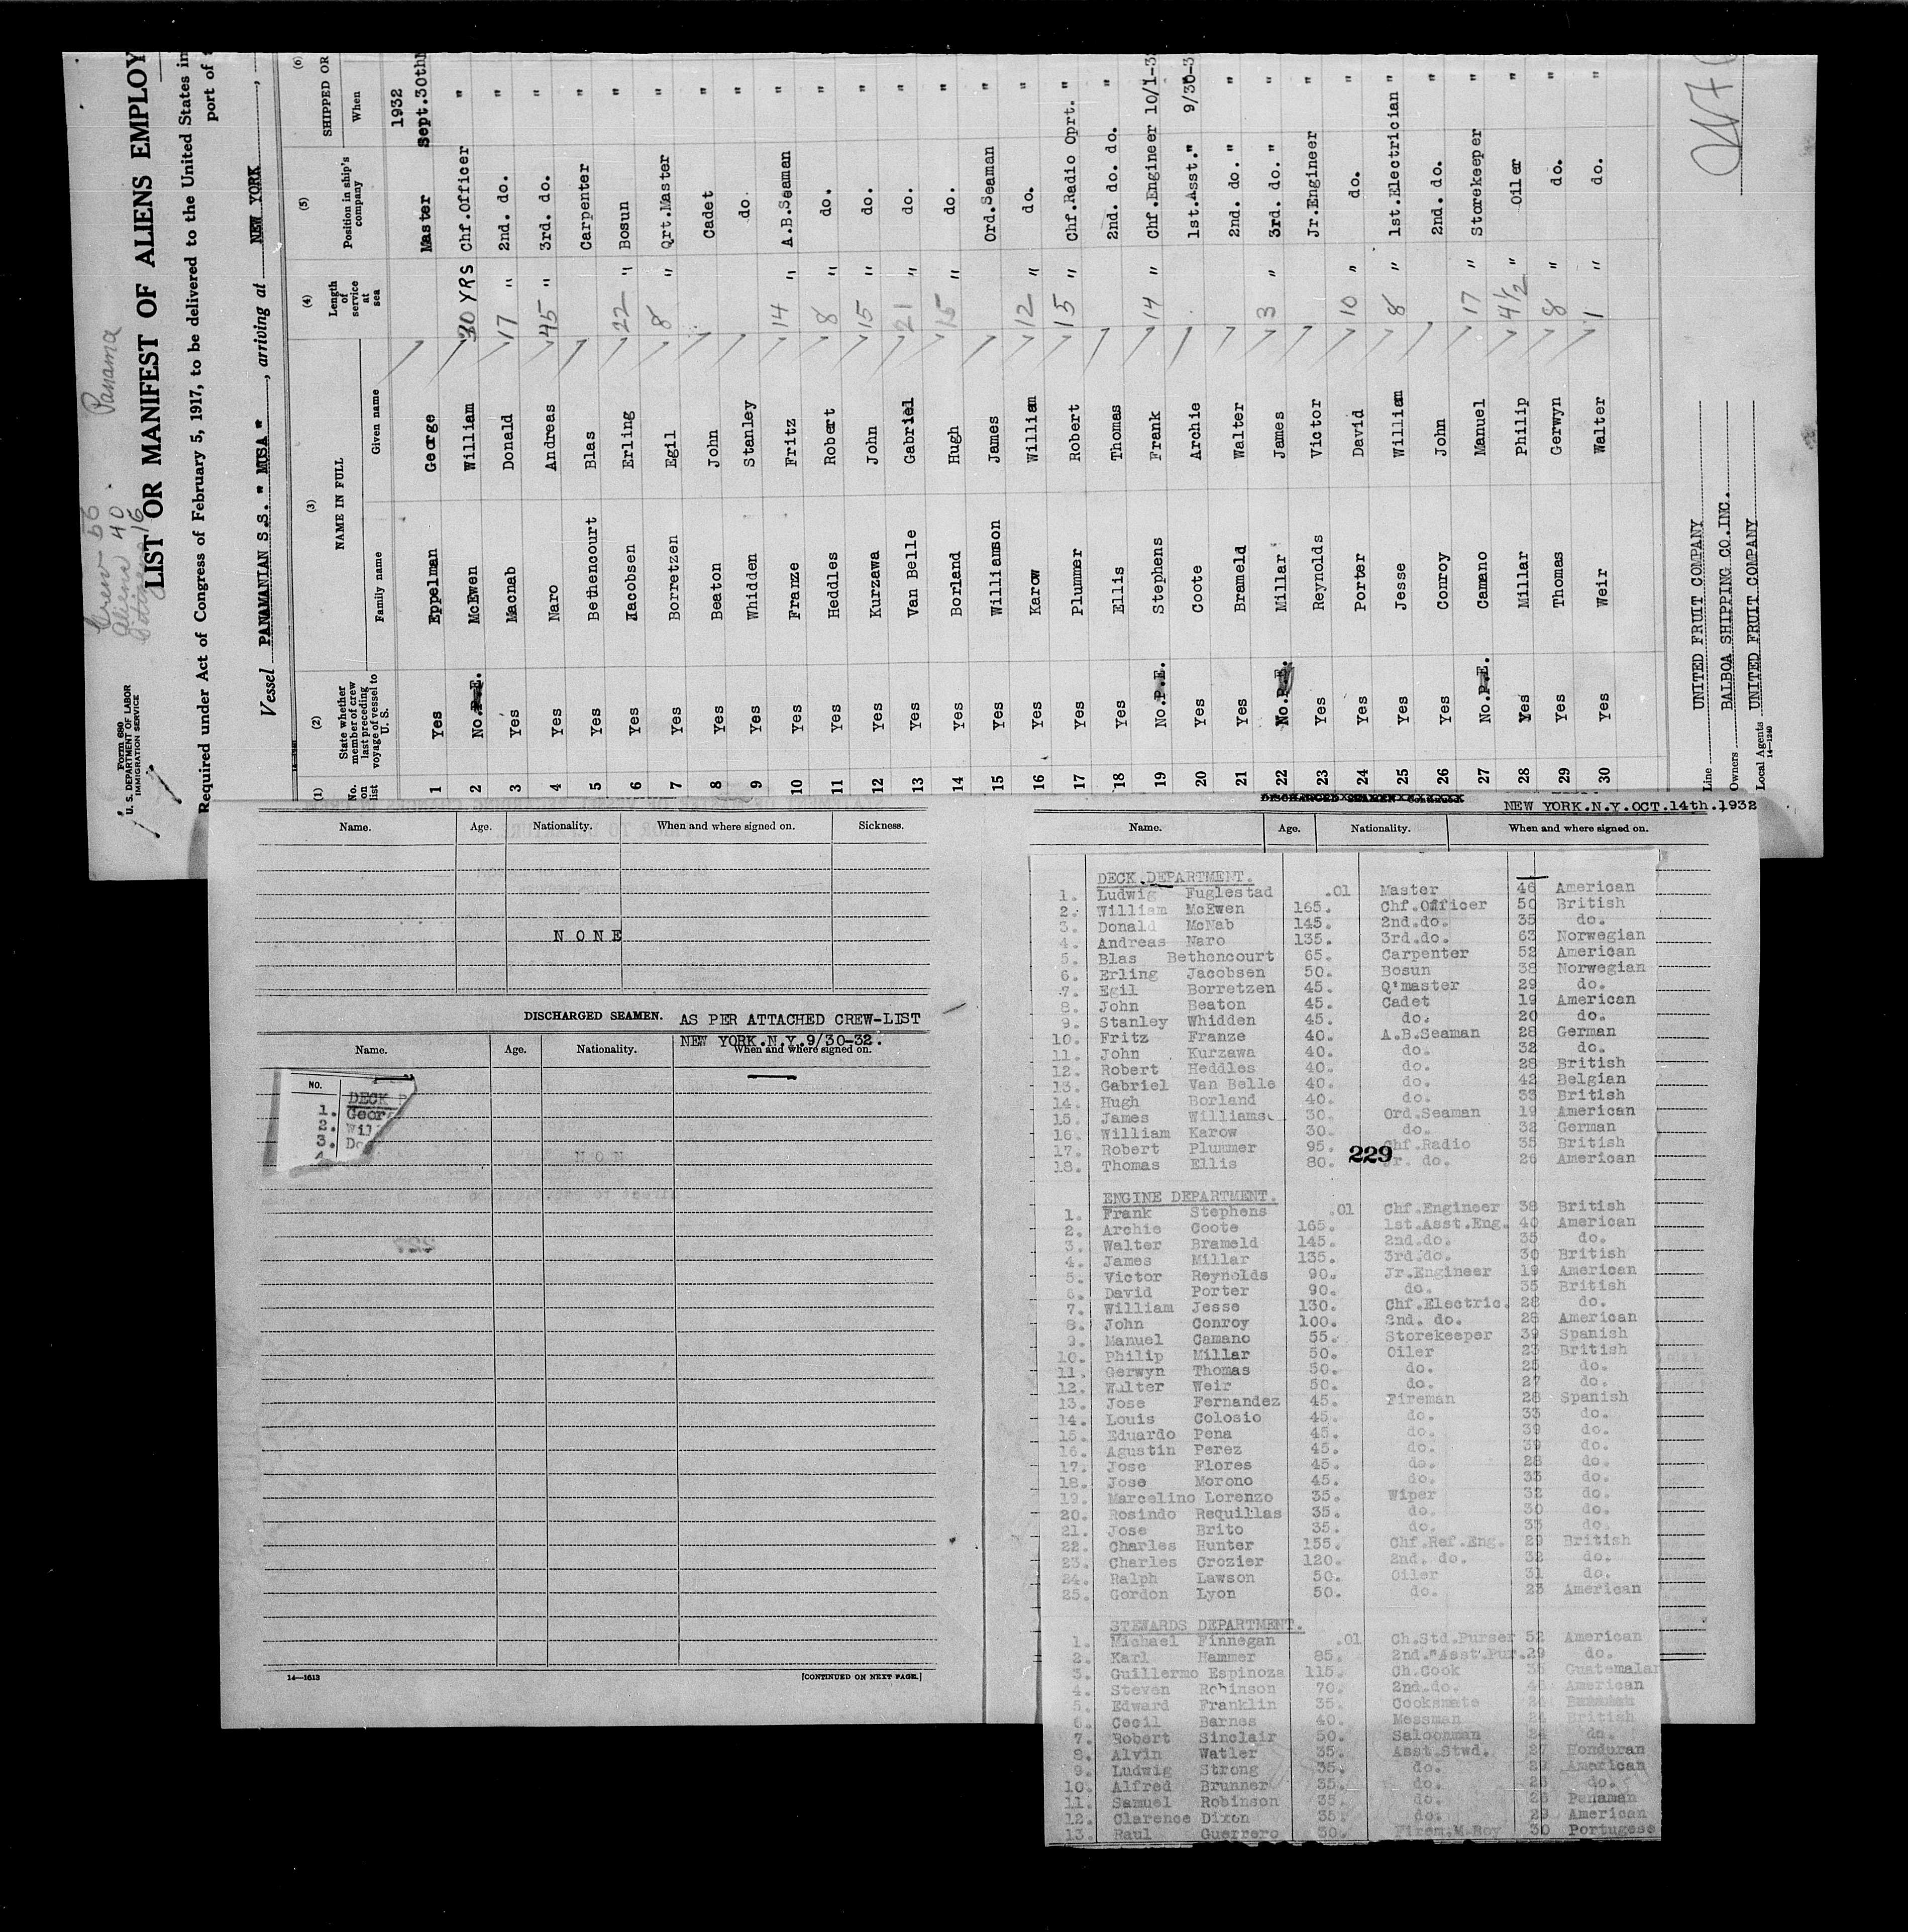 Crew 56
Aliens 40
Panama
Form 680
U. S. DEPARTMENT OF LABOR
IMMIGRATION SERVICE
LIST OR MANIFEST OF ALIENS EMPLOY
Required under Act of Congress of February 5, 1917, to be delivered to the United States
port of
Vessel PANAMANIAN S.S. " MUSA ", arriving at NEW YORK,
(1) (2) (3) (4) (5) (6)
No. on list State whether member of crew on last preceding voyage of vessel to U. S. NAME IN FULL Length of service at sea Position in ship's company SHIPPED OR
Family name Given name When
1932
1 Yes Eppelman George Master Sept.30th
2 No.P.E. McEwen William 30 YRS Chf.Officer "
3 Yes Macnab Donald 17 " 2nd. do. "
4 Yes Naro Andreas 45 " 3rd. do. "
5 Yes Bethencourt Blas Carpenter "
6 Yes Jacobsen Erling 22 " Bosun "
7 Yes Borretzen Egil 8 " Qrt.Master "
8 Yes Beaton John Cadet "
9 Yes Whidden Stanley do. "
10 Yes Franze Fritz 14 " A.B.Seaman "
11 Yes Heddles Robert 8 " do. "
12 Yes Kurzawa John 15 " do. "
13 Yes Van Belle Gabriel 21 " do. "
14 Yes Borland Hugh 15 " do. "
15 Yes Williamson James Ord.Seaman "
16 Yes Karow William 12 " do. "
17 Yes Plummer Robert 15 " Chf.Radio Oprt. "
18 Yes Ellis Thomas 2nd. do. do. "
19 No.P.E. Stephens Frank 14 " Chf.Engineer 10/1-3
20 Yes Coote Archie 1st.Asst." 9/30-3
21 Yes Brameld Walter 2nd. do. " "
22 No.P.E. Millar James 3 " 3rd. do. " "
23 Yes Reynolds Victor Jr.Engineer "
24 Yes Porter David 10 " do. "
25 Yes Jesse William 8 " 1st.Electrician "
26 Yes Conroy John 2nd. do. "
27 No.P.E. Camano Manuel 17 " Storekeeper "
28 Yes Millar Philip 4 1/2 " Oiler "
29 Yes Thomas Gerwyn 8 " do. "
30 Yes Weir Walter 1 " do. "
Line UNITED FRUIT COMPANY
Owners BALBOA SHIPPING CO.INC.
Local Agents UNITED FRUIT COMPANY
14—1240
Name. Age. Nationality. When and where signed on. Sickness.
N O N E
DISCHARGED SEAMEN. AS PER ATTACHED CREW-LIST
NEW YORK.N.Y.9/30-32.
Name. Age. Nationality. When and where signed on.
NO.
DECK
1. Geor
2. Wil
3. Do
14—1613
[CONTINUED ON NEXT PAGE.]
NEW YORK.N.Y.OCT.14th.1932
Name. Age. Nationality. When and where signed on.
DECK DEPARTMENT.
1. Ludwig Fuglestad .01 Master 46 American
2. William McEwen 165. Chf.Officer 50 British
3. Donald McNab 145. 2nd.do. 35 do.
4. Andreas Naro 135. 3rd.do. 63 Norwegian
5. Blas Bethencourt 65. Carpenter 52 American
6. Erling Jacobsen 50. Bosun 38 Norwegian
7. Egil Borretzen 45. Q'master 29 do.
8. John Beaton 45. Cadet 19 American
9. Stanley Whidden 45. do. 20 do.
10. Fritz Franze 40. A.B.Seaman 28 German
11. John Kurzawa 40. do. 32 do.
12. Robert Heddles 40. do. 28 British
13. Gabriel Van Belle 40. do. 42 Belgian
14. Hugh Borland 40. do. 33 British
15. James Williams 30. Ord.Seaman 19 American
16. William Karow 30. do. 32 German
17. Robert Plummer 95. Chf.Radio 35 British
229
18. Thomas Ellis 80. Jr. do. 26 American
ENGINE DEPARTMENT.
1. Frank Stephens .01 Chf.Engineer 38 British
2. Archie Coote 165. 1st.Asst.Eng. 40 American
3. Walter Brameld 145. 2nd.do. 35 do.
4. James Millar 135. 3rd.do. 30 British
5. Victor Reynolds 90. Jr.Engineer 19 American
6. David Porter 90. do. 35 British
7. William Jesse 130. Chf.Electric. 28 do.
8. John Conroy 100. 2nd. do. 28 American
9. Manuel Camano 55. Storekeeper 39 Spanish
10. Philip Millar 50. Oiler 23 British
11. Gerwyn Thomas 50. do. 25 do.
12. Walter Weir 50. do. 27 do.
13. Jose Fernandez 45. Fireman 28 Spanish
14. Louis Colosio 45. do. 33 do.
15. Eduardo Pena 45. do. 39 do.
16. Agustin Perez 45. do. 39 do.
17. Jose Flores 45. do. 28 do.
18. Jose Morono 45. do. 33 do.
19. Marcelino Lorenzo 35. Wiper 32 do.
20. Rosindo Requillas 35. do. 30 do.
21. Jose Brito 35. do. 33 do.
22. Charles Hunter 155. Chf.Ref.Eng. 29 British
23. Charles Crozier 120. 2nd. do. 32 do.
24. Ralph Lawson 50. Oiler 31 do.
25. Gordon Lyon 50. do. 23 American
STEWARDS DEPARTMENT.
1. Michael Finnegan .01 Ch.Std.Purser 52 American
2. Karl Hammer 85. 2nd."Asst".Pur. 29 do.
3. Guillermo Espinoza 115. Ch.Cook 36 Guatemalan
4. Steven Robinson 70. 2nd.do. American
5. Edward Franklin 35. Cooksmate 24
6. Cecil Barnes 40. Messman 24 British
7. Robert Sinclair 50. Saloonman 24 do.
8. Alvin Watler 35. Asst.Stwd. 27 Honduran
9. Ludwig Strong 35. do. 29 American
10. Alfred Brunner 35. do. 26 do.
11. Samuel Robinson 35. do. 26 Panaman
12. Clarence Dixon 35. do. 29 American
13. Raul Guerrero 30. Firem.M.Boy 30 Portugese